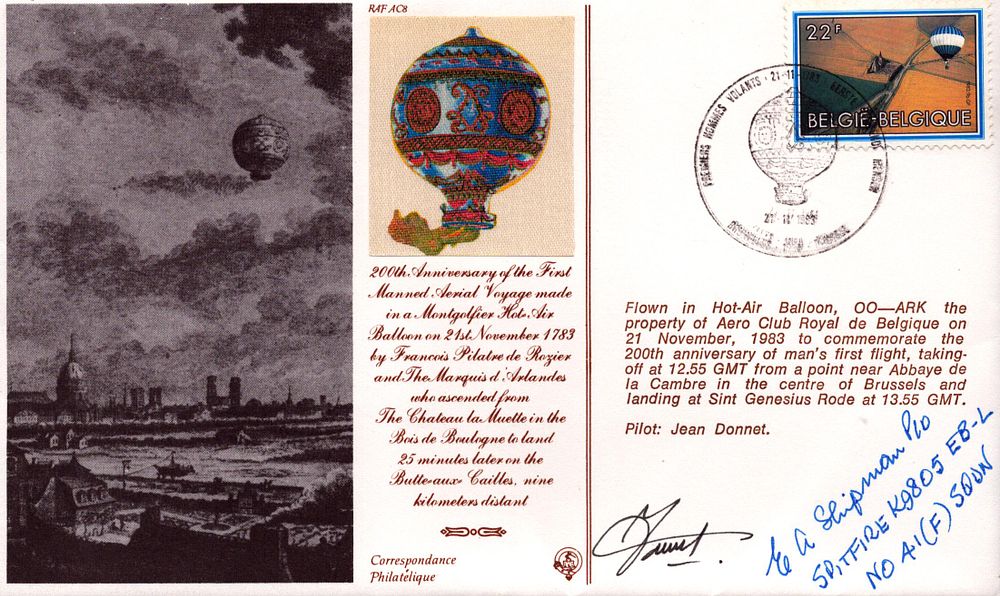 RAF AC8
200th Anniversary of the First
Manned Aerial Voyage made
in a Montgolfier Hot-Air
Balloon on 21st November 1783
by Francois Pilatre de Rozier
and The Marquis d'Arlandes
who ascended from
The Chateau la Muette in the
Bois de Boulogne to land
25 minutes later on the
Butte-aux-Cailles, nine
kilometers distant
Correspondance
Philatélique
22F
BELGIË-BELGIQUE
PREMIERS HOMMES VOLANTS · 21-11-1983 · EERSTE
21-11-1983
Flown in Hot-Air Balloon, OO—ARK the
property of Aero Club Royal de Belgique on
21 November, 1983 to commemorate the
200th anniversary of man's first flight, taking-
off at 12.55 GMT from a point near Abbaye de
la Cambre in the centre of Brussels and
landing at Sint Genesius Rode at 13.55 GMT.
Pilot: Jean Donnet.
E A Shipman P/O
SPITFIRE K9805 EB-L
NO 41(F) SQDN